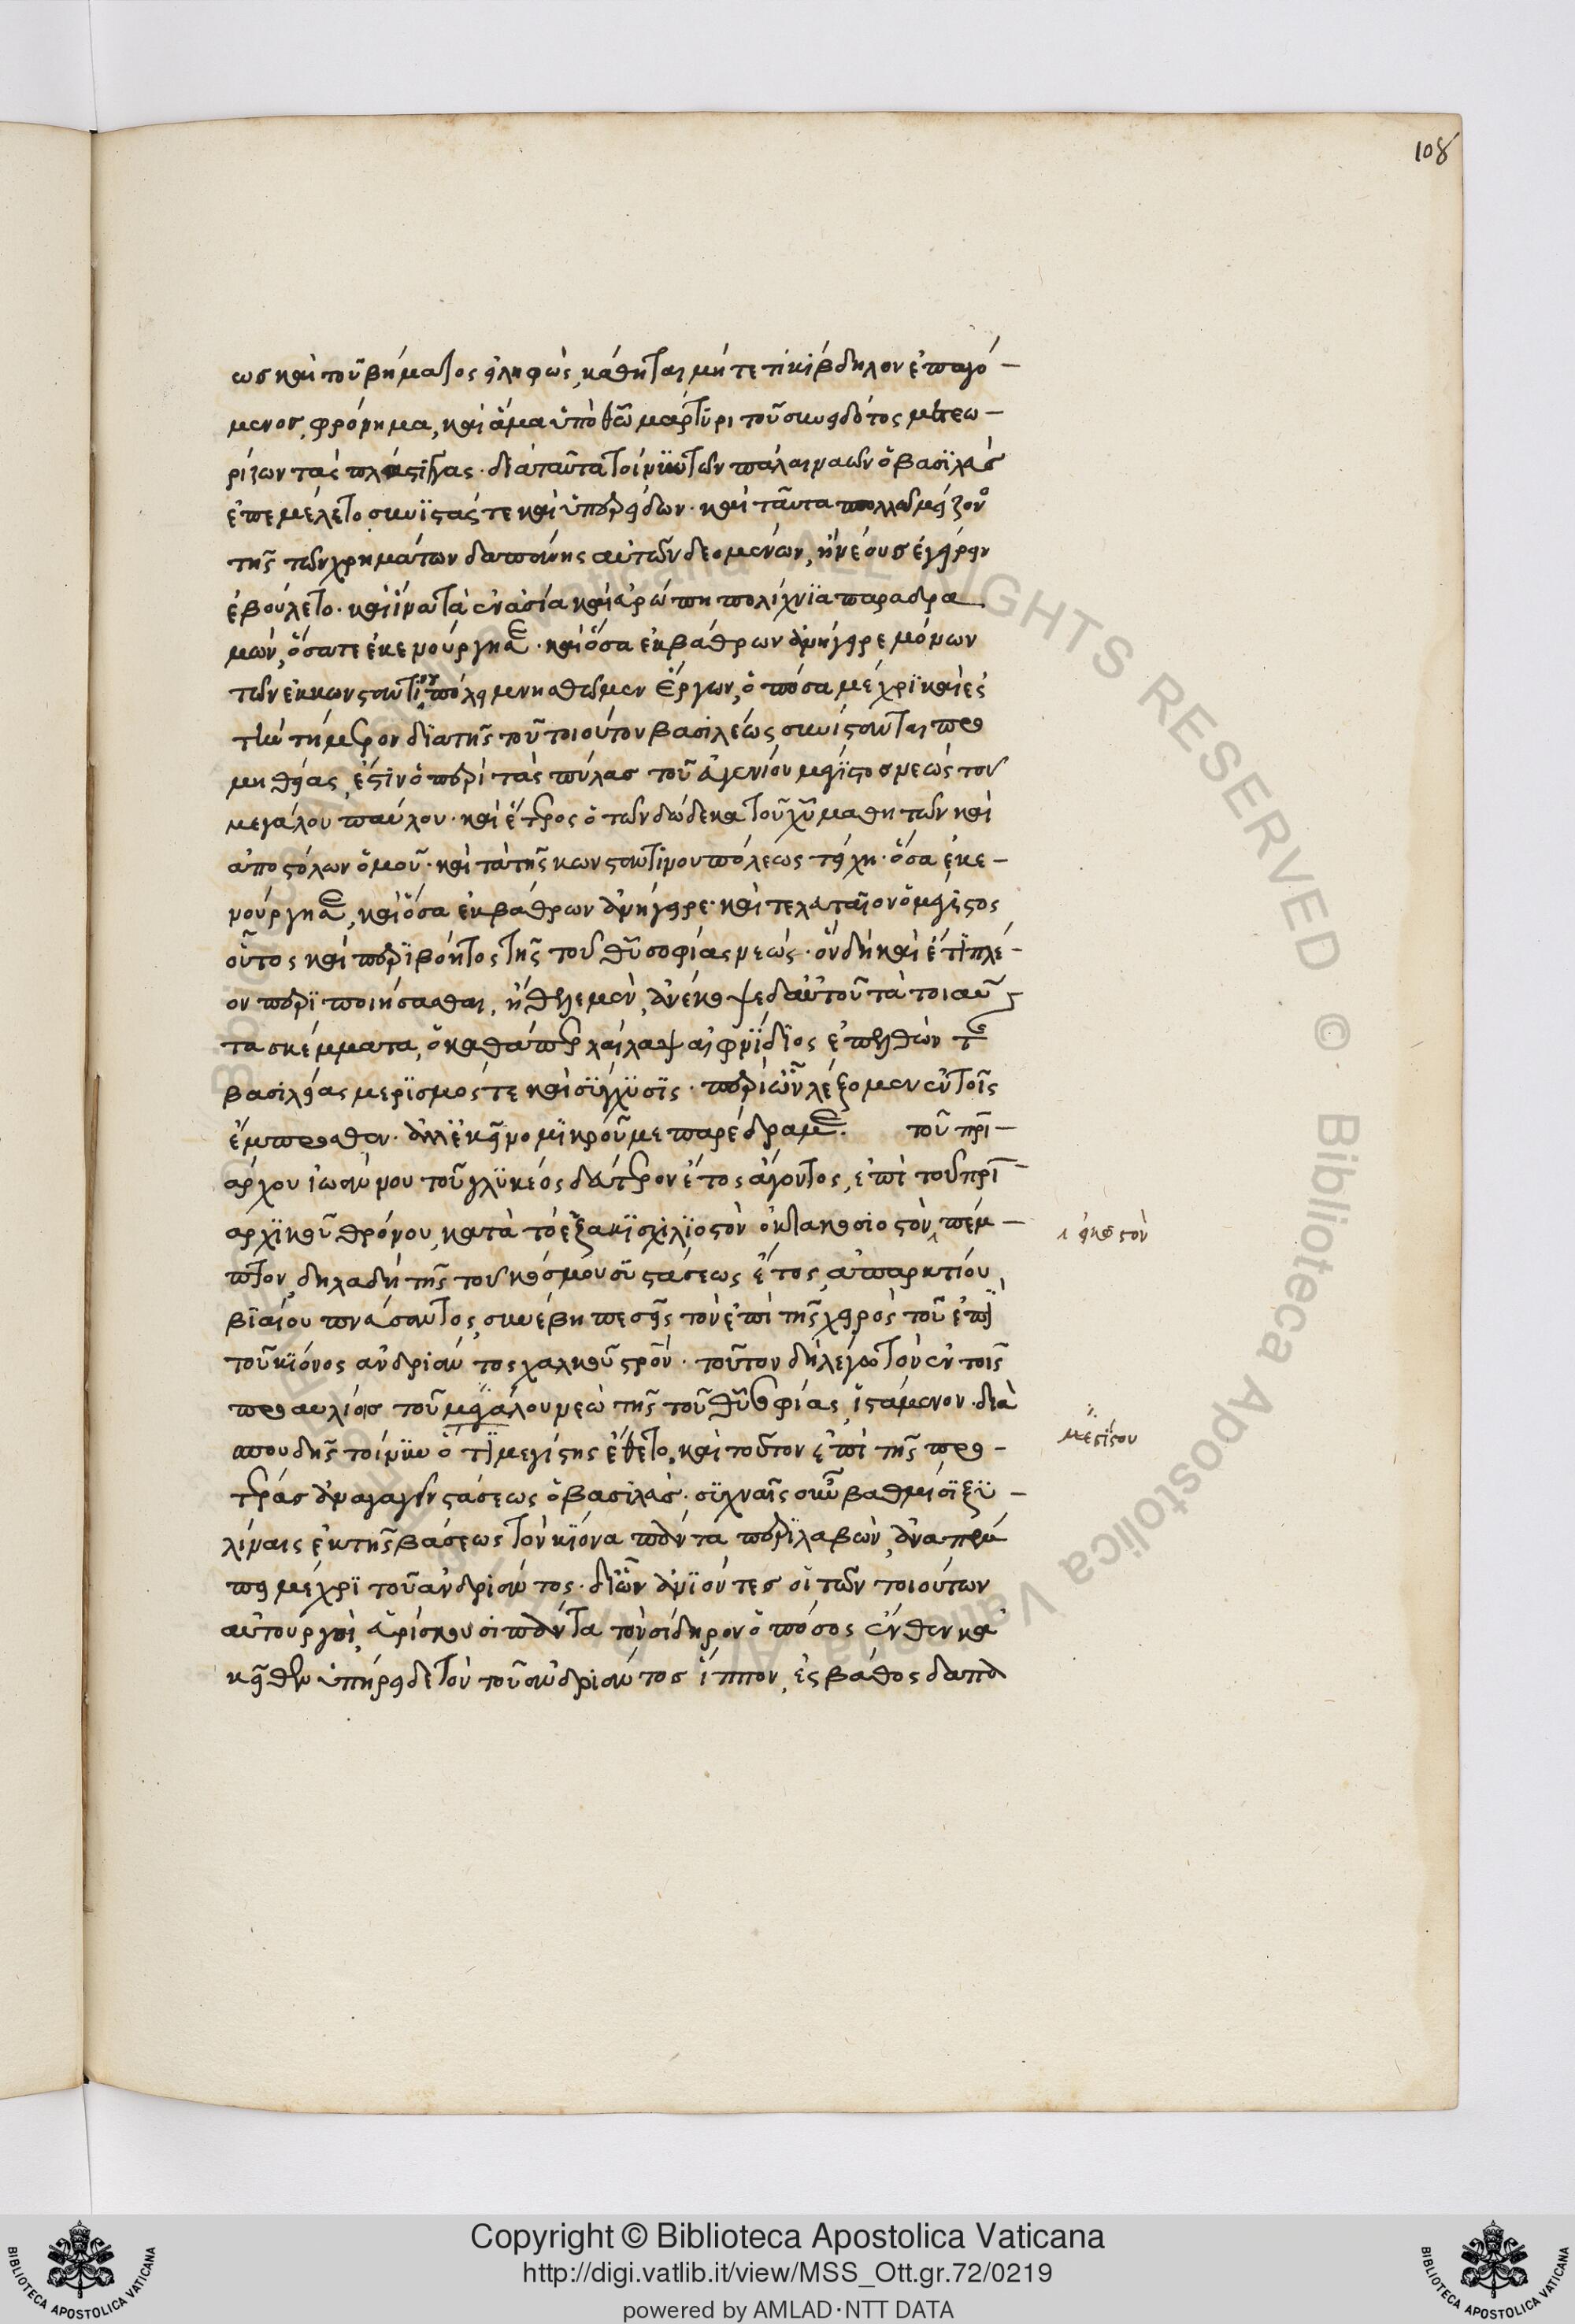 108
ως καὶ τοῦ βήματος εἰληφὼς, κάθηται μήτε τι κίβδηλον ἐπαγό-
μενος, φρόνημα, καὶ ἅμα ὑπὸ θεῷ μάρτυρι τοῦ συνειδότος μετεω-
ρίζων τὰς πλάστιγγας. διὰ ταῦτα τοίνυν τῶν παλαιναῶν ὁ βασιλεὺς
ἐπεμέλετο συνιστάς τε καὶ ὑπερείδων. καὶ ταῦτα πολλῶ μείζον
τῆς τῶν χρημάτων δαπάνης αὐτῶν δεομένων, ἢ νέους ἐγείρειν
ἐβούλετο. καὶ ἵνα τὰ ἐν ἀσία καὶ εὐρώπη πολίχνια παραδρα
μών, ὅσα τε ἐκενούργησε. καὶ ὅσα ἐκ βάθρων ἀνήγειρε μόνων
τῶν ἐν κωνσταντίνου πόλει μνησθῶμεν ἔργων, ὁπόσα μέχρι καὶ ἐς
τὴν τήμερον διὰ τῆς τοῦ τοιούτου βασιλέως συνίστανται προ
μηθείας, ἔστιν ὁ περὶ τὰς πύλας τοῦ εὐγενίου μέγιστος νεὼς τοῦ
μεγάλου παύλου. καὶ ἕτερος ὁ τῶν δώδεκα τοῦ χυ μαθητῶν καὶ
ἀποστόλων ὁμοῦ. καὶ τὰ τῆς κωνσταντίνου πόλεως τείχη. ὅσα ἐκε-
νούργησε, καὶ ὅσα ἐκ βάθρων ἀνήγειρε. καὶ τελευταῖον ὁ μέγιστος
οὗτος καὶ περιβόητος τῆς τοῦ θυ σοφίας νεώς. ὃν δὴ καὶ ἔτι πλέ-
ον περιποιήσασθαι, ἤθελε μὲν, ἀνέκοψε δ᾽ αὐτοῦ τὰ τοιαῦ
τα σκέμματα, ὁ καθάπερ λαίλαψ αἰφνίδιος ἐπελθὼν τῆς
βασιλείας μερισμός τε καὶ σύγχυσις. περὶ ὧν λέξομεν ἐν τοῖς
ἔμπροσθεν. ἀλλ᾽ ἐκεῖνο μικροῦ με παρέδραμε. τοῦ πρι-
άρχου ἰωάννου τοῦ γλυκέος δεύτερον ἔτος ἄγοντος, ἐπὶ τοῦ πρι-
αρχικοῦ θρόνου, κατὰ τὸ ἑξακισχιλιοστὸν ὀκτακοσιοστὸν, πέμ-
πτον, δηλαδὴ τῆς τοῦ κόσμου συστάσεως ἔτος, ἀπαρκτίου
βιαίου πνεύσαντος, συνέβη πεσεῖν τὸν ἐπὶ τῆς χειρὸς τοῦ ἐπὶ
τοῦ κίονος ἀνδριάντος χαλκοῦ σρον. τοῦτον δὴ λέγω τὸν ἐν τοῖς
προαυλίοις τοῦ μεγάλου νεὼ τῆς τοῦ θυ σοφίας, ἱστάμενον. διὰ
σπουδῆς τοίνυν ὅτι μεγίστης ἔθετο, καὶ τοῦτον ἐπὶ τῆς προ-
τέρας ἀναγαγεῖν στάσεως ὁ βασιλεύς. συχναῖς οὖν βαθμίσι ξυ-
λίναις ἐκ τῆς βάσεως τὸν κίονα πάντα περιλαβὼν, ἀνατρέ
πει μέχρι τοῦ ἀνδριάντος. δι᾽ ὧν ἀνιόντες οἱ τῶν τοιούτων
αὐτουργοὶ, εὑρίσκουσι πάντα τὸν σίδηρον ὁπόσος ἔνθεν κα
κεῖθεν ὑπήρειδε τὸν τοῦ ἀνδριάντος ἵππον, ἐς βάθος δαπα
εἰκοστὸν
μεγίστου
Copyright © Biblioteca Apostolica Vaticana
http://digi.vatlib.it/view/MSS_Ott.gr.72/0219
powered by AMLAD·NTT DATA